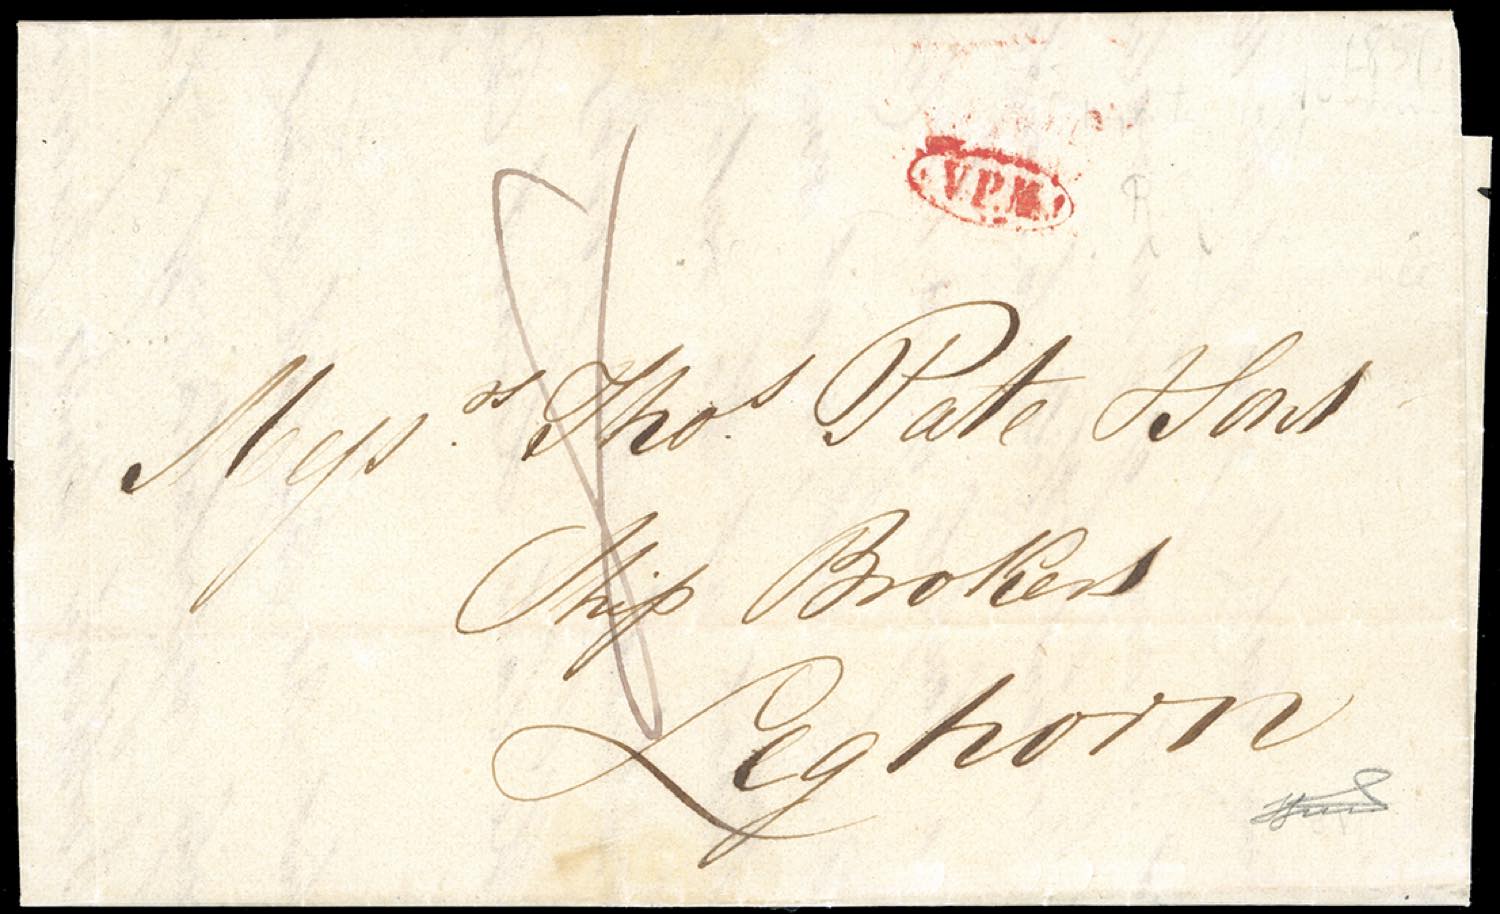 V.P.M.
Messrs. Thos. Pate & Sons
Ship Brokers
Leghorn